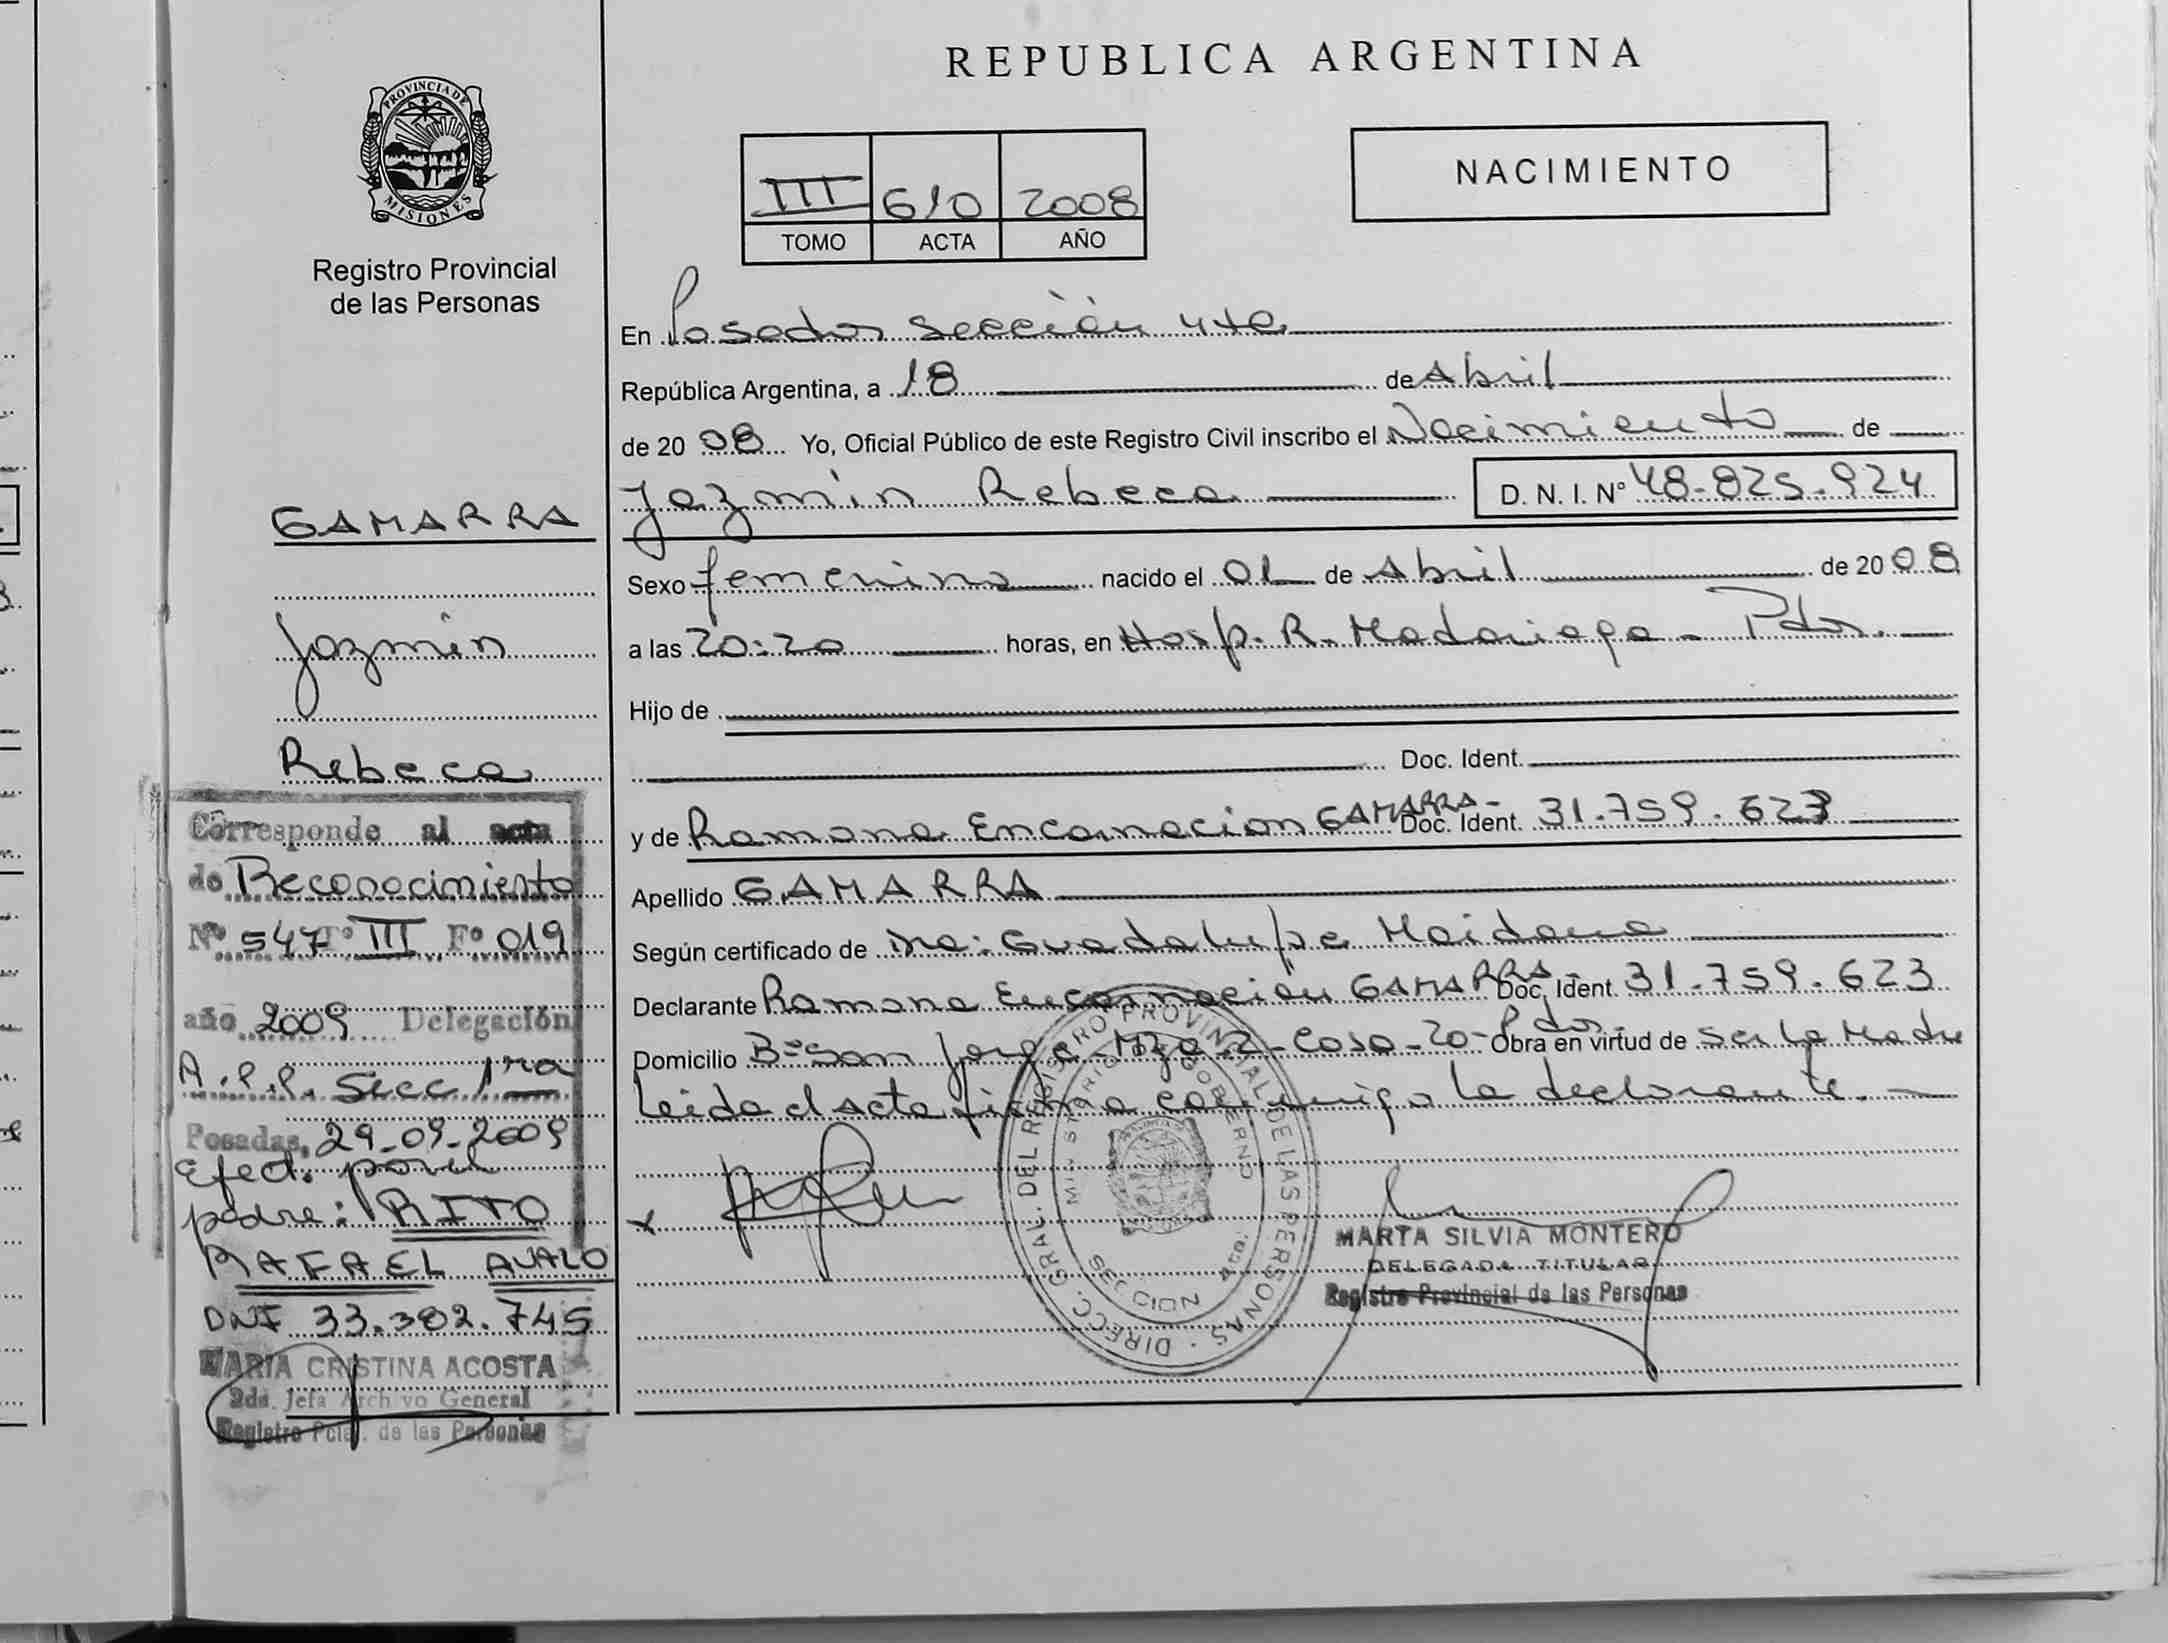 REPUBLICA ARGENTINA
PROVINCIA DE
MISIONES
Registro Provincial
de las Personas
III 610 2008
TOMO ACTA AÑO
NACIMIENTO
En Posadas sección 4ta
República Argentina, a 18 de Abril
de 2008 Yo, Oficial Público de este Registro Civil inscribo el Nacimiento de
Jazmín Rebeca D. N. I. Nº 48.825.924
Sexo femenino nacido el 01 de Abril de 2008
a las 20:20 horas, en Hosp. R. Madariaga - Pdas.
Hijo de
Doc. Ident.
y de Ramona Encarnacion GAMARRA - Doc. Ident. 31.759.623
Apellido GAMARRA
Según certificado de Guadalupe Maidana
Declarante Ramona Encarnación GAMARRA - Doc. Ident. 31.759.623
Domicilio Bº San Jorge - Mza 2 - Casa - 20 - Pdas. - Obra en virtud de ser la Madre
Leida el Acta firma conmigo la declarante. -
x
DIRECC. GRAL. DEL REGISTRO PROVINCIAL DE LAS PERSONAS
MINISTERIO DE GOBIERNO
SECCION 4ta.
MARTA SILVIA MONTERO
DELEGADA TITULAR
Registro Provincial de las Personas
GAMARRA
Jazmín
Rebeca
Corresponde al acta
de Reconocimiento
Nº 547 Tº III Fº 019
año 2009 Delegación
A.P.P. Secc 1ra
Posadas, 29-09-2009
Efect. por el
padre: RITO
RAFAEL AVALO
DNI 33.382.745
MARIA CRISTINA ACOSTA
2da. Jefa Archivo General
Registro Pcial. de las Personas